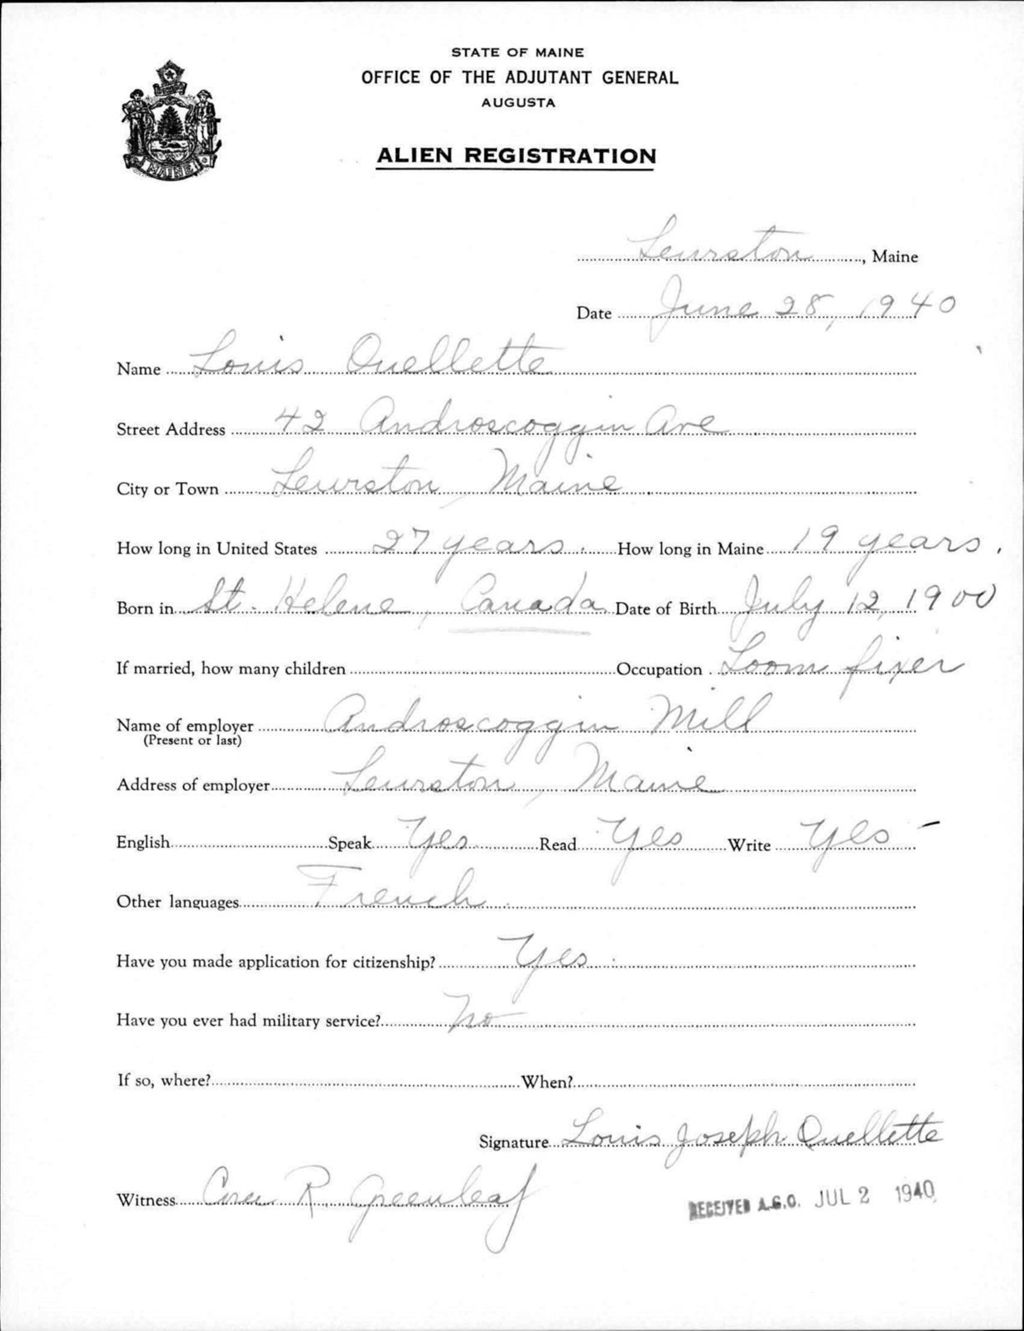 STATE OF MAINE
OFFICE OF THE ADJUTANT GENERAL
AUGUSTA
ALIEN REGISTRATION
MAINE
Lewiston, Maine
Date June 28, 1940
Name Louis Ouellette
Street Address 42 Androscoggin Ave
City or Town Lewiston, Maine
How long in United States 27 years. How long in Maine 19 years.
Born in St. Helene, Canada Date of Birth July 12, 1900
If married, how many children Occupation Loom fixer
Name of employer Androscoggin Mill
(Present or last)
Address of employer Lewiston, Maine
English Speak Yes Read Yes Write Yes -
Other languages French.
Have you made application for citizenship? Yes.
Have you ever had military service? No
If so, where? When?
Signature Louis Joseph Ouellette
Witness R. Greenleaf
RECEIVED A.G.O. JUL 2 1940